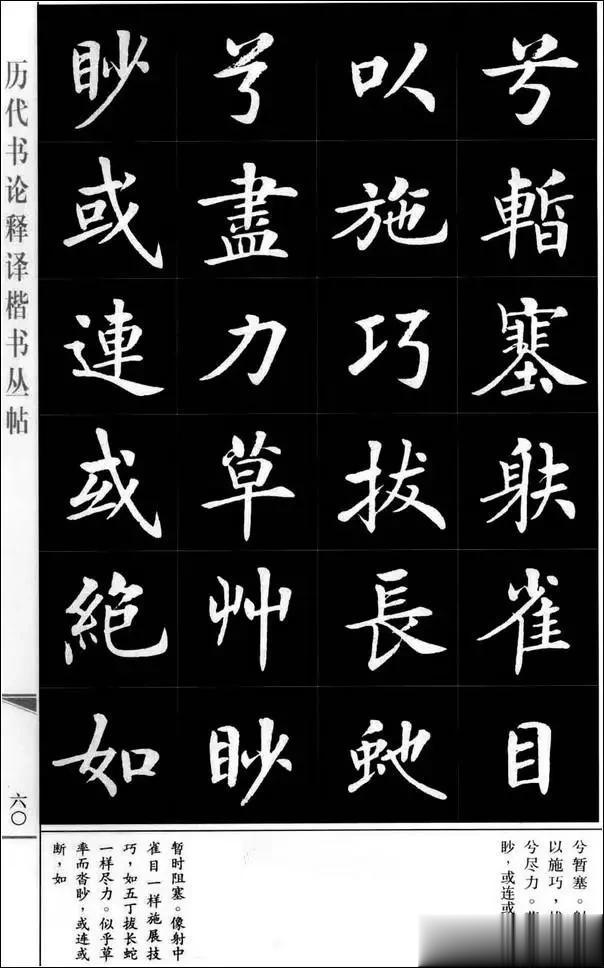 兮暫塞䠶雀目
以施巧拔長虵
兮盡力草艸眇
眇或連或絶如
兮暂塞。
以施巧，
兮尽力。
眇，或连或
暂时阻塞。像射中
雀目一样施展技
巧，如五丁拔长蛇
一样尽力。似乎草
率而杳眇，或连或
断，如
历代书论释译楷书丛帖
六〇